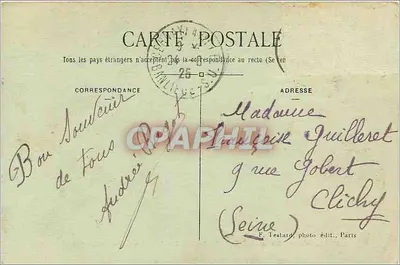 CARTE POSTALE
Tous les pays étrangers n'acceptent pas la correspondance au recto (Se ren
CORRESPONDANCE
ADRESSE
Bon Souvenir
de tous
André
Madame
Françoise Guilleret
9 rue Gobert
Clichy
(Seine)
F. Testard, photo édit., Paris
25
CPAPHIL